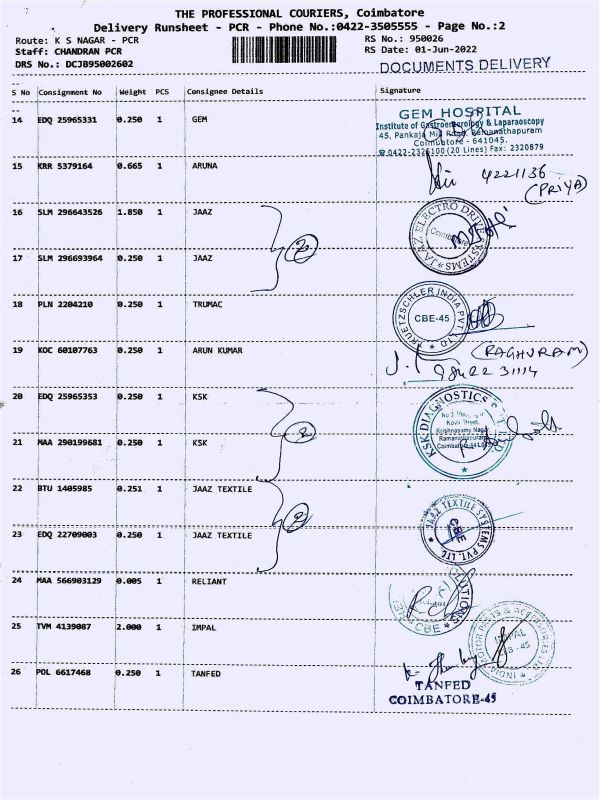 THE PROFESSIONAL COURIERS, Coimbatore
Delivery Runsheet - PCR - Phone No.:0422-3505555 - Page No.:2
Route: K S NAGAR - PCR
RS No.: 950026
Staff: CHANDRAN PCR
RS Date: 01-Jun-2022
DRS No.: DCJB95002602
DOCUMENTS DELIVERY
S No Consignment No Weight PCS Consignee Details Signature
14 EDQ 25965331 0.250 1 GEM
GEM HOSPITAL
Institute of Gastroenterology & Laparaoscopy
45, Pankaja Mill Road, Ramanathapuram
Coimbatore - 641045.
0422-2325100 (20 Lines) Fax: 2320879
15 KRR 5379164 0.665 1 ARUNA
4221136
(PRIYA)
16 SLM 296643526 1.850 1 JAAZ
JAAZ ELECTRO DRIVE SYSTEMS
2
17 SLM 296693964 0.250 1 JAAZ
18 PLN 2204210 0.250 1 TRUMAC
TRUETZSCHLER INDIA PVT. LTD
CBE-45
19 KOC 60107763 0.250 1 ARUN KUMAR
(RAGHURAM)
20 EDQ 25965353 0.250 1 KSK
KSK DIAGNOSTICS
Kovil Street,
Krishnasamy Nagar
Ramanathapuram
2
21 MAA 290199681 0.250 1 KSK
22 BTU 1405985 0.251 1 JAAZ TEXTILE
JAAZ TEXTILE SYSTEMS PVT. LTD.
CBE
2
23 EDQ 22709003 0.250 1 JAAZ TEXTILE
24 MAA 566903129 0.005 1 RELIANT
CBE
25 TVM 4139087 2.000 1 IMPAL
INDIA MOTOR PARTS & ACCESSORIES LTD
IMPAL
26 POL 6617468 0.250 1 TANFED
TANFED
COIMBATORE-45